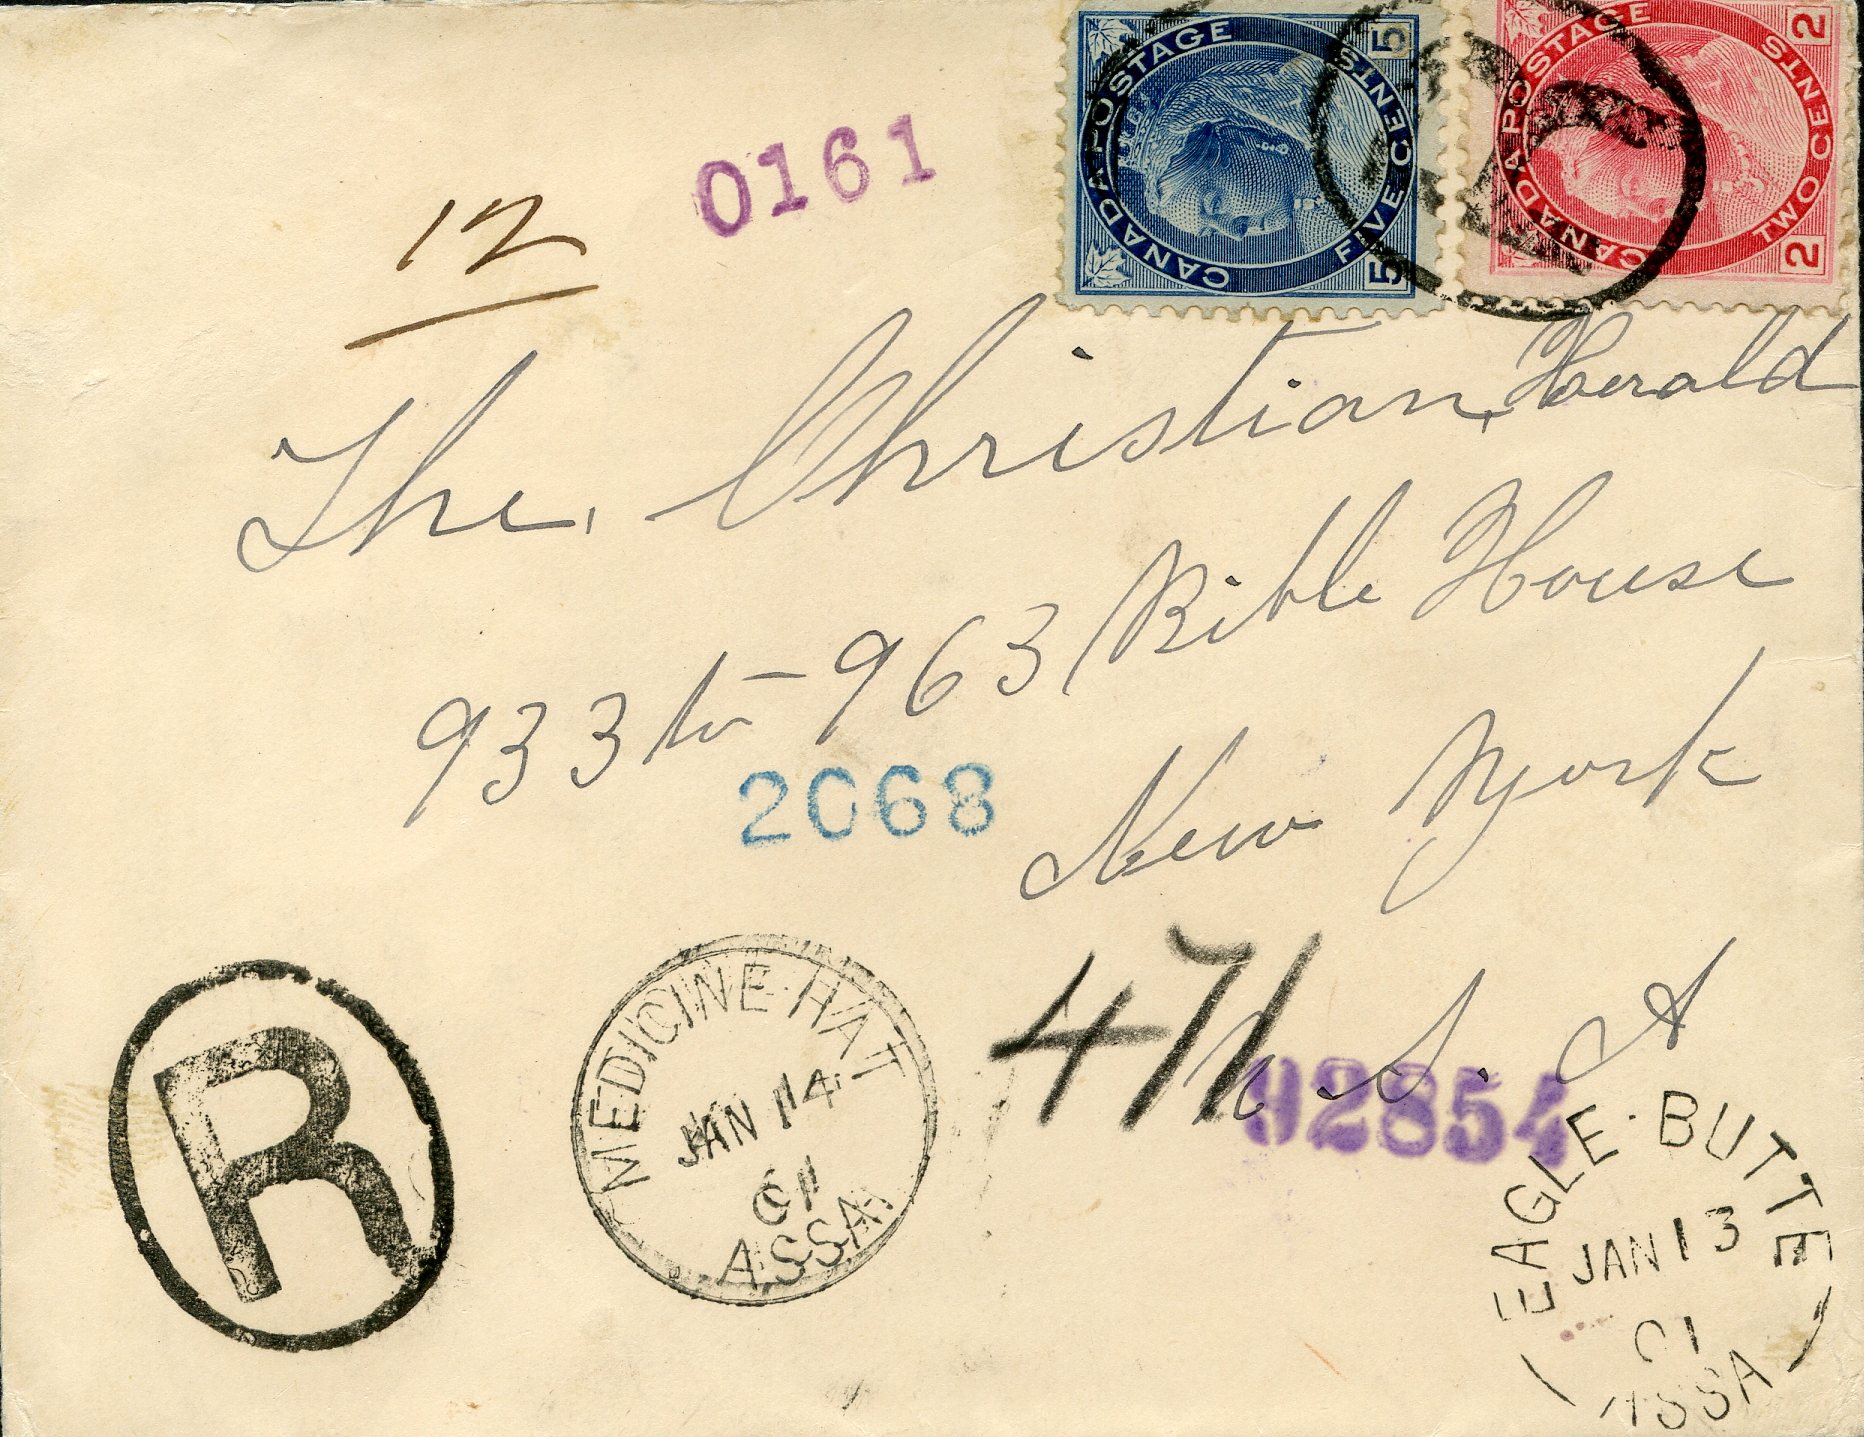 CANADA POSTAGE
5 FIVE CENTS 5
CANADA POSTAGE
2 TWO CENTS 2
0161
12
The, Christian, Herald
933 to 963 Bible House
2068
New York
471
U. S. A
92854
R
MEDICINE·HAT
JAN 14
01
ASSA.
EAGLE·BUTTE
JAN 13
01
ASSA